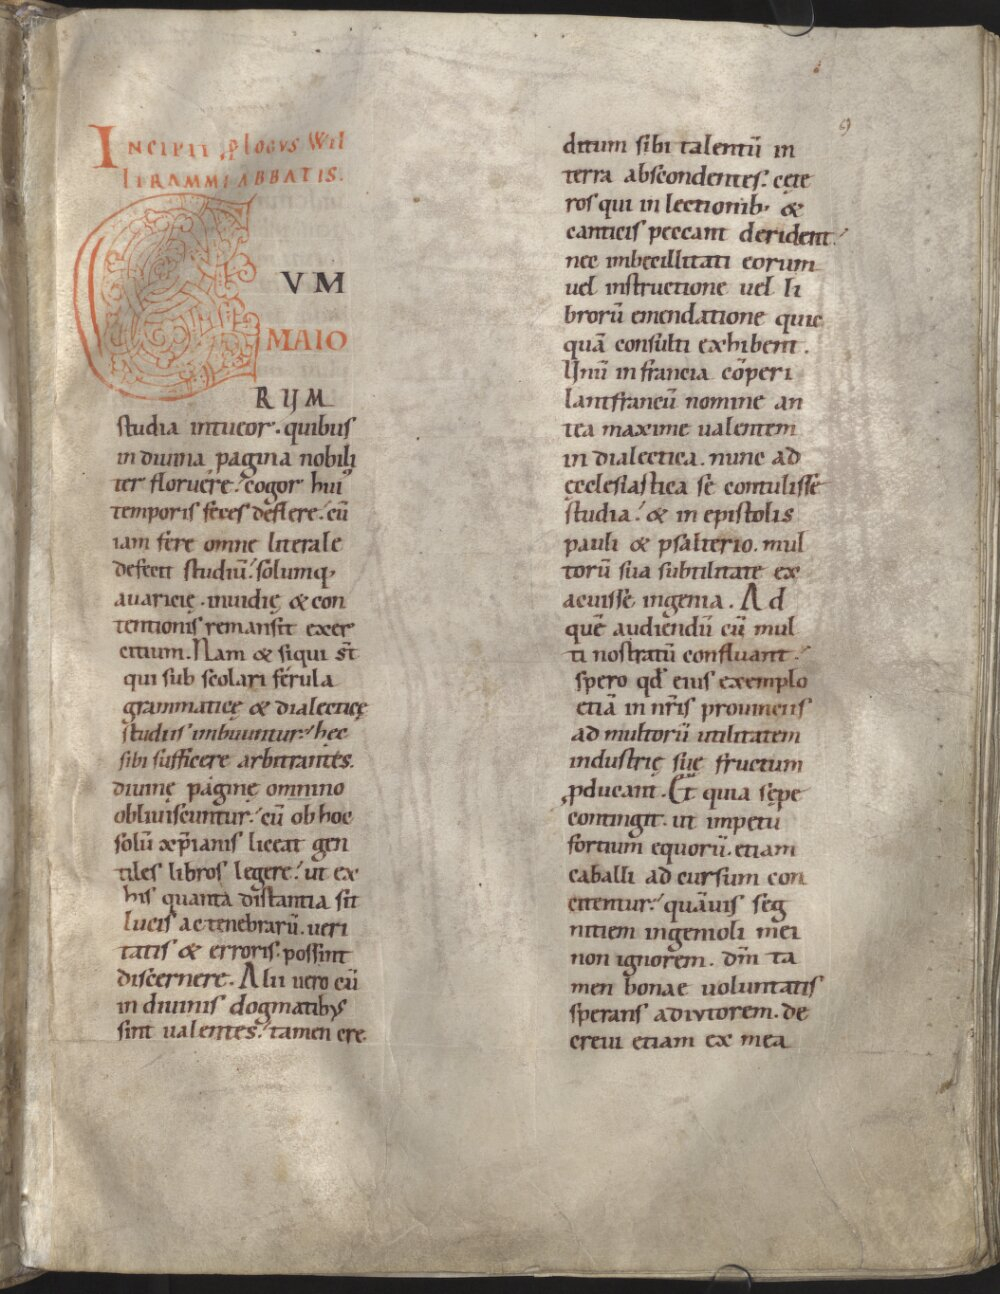 INCIPIT PLOGVS WIL
LIRAMMI ABBATIS.
CVM
MAIO
RUM
studia intueor. quibus
in diuina pagina nobili
ter floruere. cogor hui
temporis feces deflere. cū
iam fere omne literale
defecit studiū. solumq;
auaricię. inuidię & con
tentionis remansit exer
citium. Nam & siqui st̄
qui sub scolari ferula
grammaticę & dialecticę
studiis imbuuntur. hęc
sibi sufficere arbitrantes.
diuinę paginę omnino
obliuiscuntur. cū ob hoc
solū xp̄ianis liceat gen
tiles libros legere. ut ex
his quanta distantia sit
lucis ac tenebrarū. ueri
tatis & erroris. possint
discernere. Alii uero cū
in diuinis dogmatibus
sint ualentes. tamen cre
9
ditum sibi talentū in
terra abscondentes. cęte
ros qui in lectionib; &
canticis peccant derident.
nec imbecillitati eorum
uel instructione uel li
brorū emendatione quic
quā consulti exhibent.
Unū in francia cōperi
lantfrancū nomine an
tea maxime ualentem
in dialectica. nunc ad
ęcclesiastica se contulisse
studia. & in epistolis
pauli & psalterio. mul
torū sua subtilitate ex
acuisse ingenia. Ad
quē audiendū cū mul
ti nostratū confluant.
spero qd̄ eius exemplo
etiā in nr̄is prouinciis
ad multorū utilitatem
industrię suę fructum
pducant. Et quia sępe
contingit. ut impetu
fortium equorū. etiam
caballi ad cursum con
citentur. quāuis seg
nitiem ingenioli mei
non ignorem. dm̄ ta
men bonae uoluntatis
sperans adiutorem. de
creui etiam ex mea